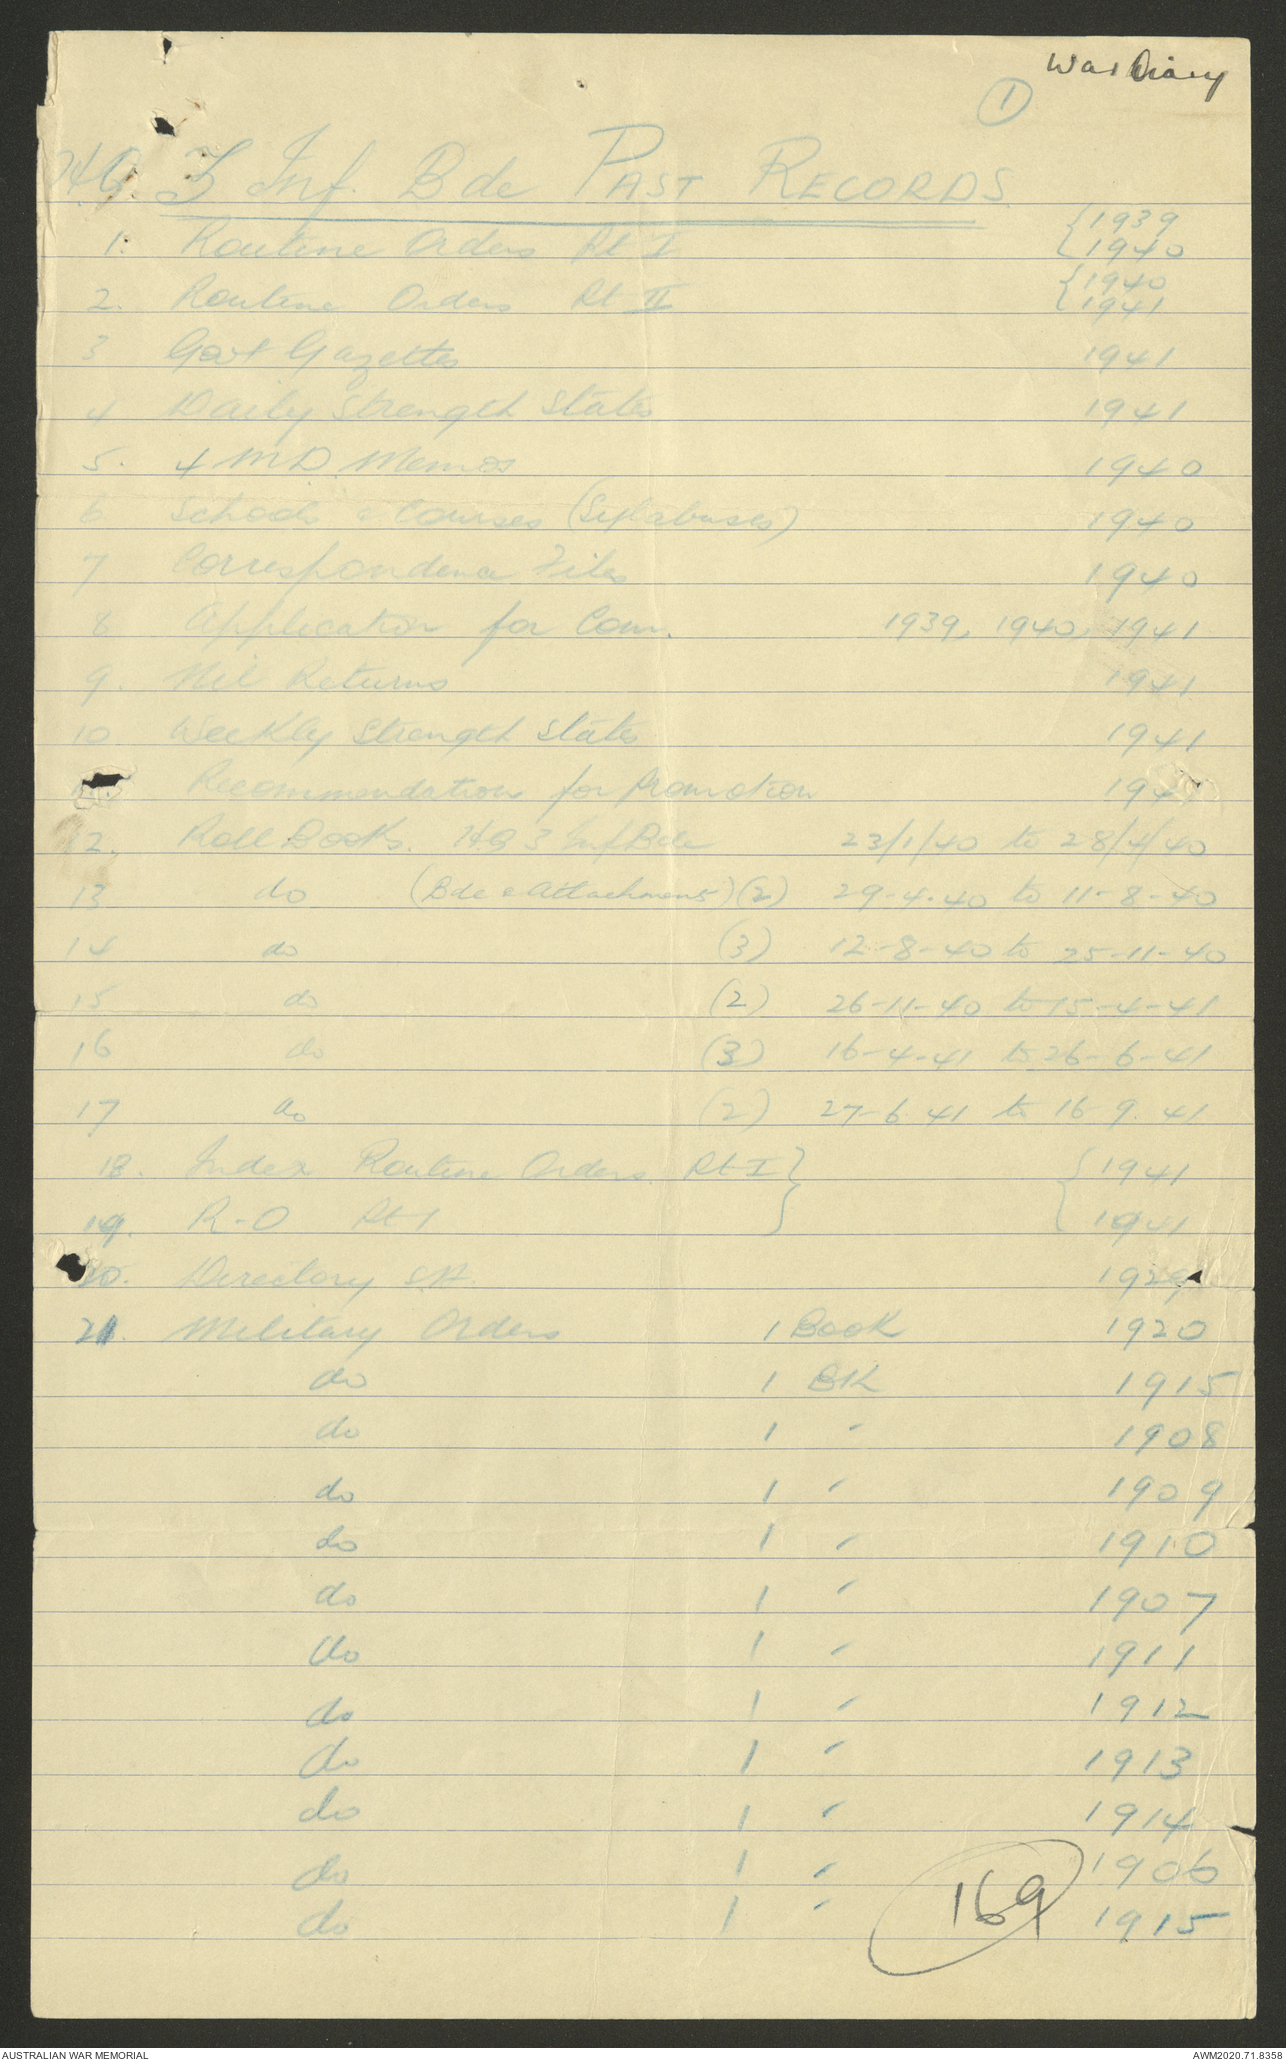 War Diary
1
H.Q. 3 Inf. Bde PAST RECORDS
1. Routine Orders Pt I {1939 1940
2. Routine Orders Pt II {1940 1941
3 Govt Gazettes 1941
4 Daily Strength States 1941
5. 4 M.D. Memos 1940
6 Schools & Courses (Sylabuses) 1940
7 Correspondence Files 1940
8 Application for Com. 1939, 1940, 1941
9. Mil Returns 1941
10 Weekly Strength States 1941
Recommendations for Promotion 194
2. Roll Books. H.Q 3 Inf Bde 23/1/40 to 28/4/40
13 do (Bde & Attachments) (2) 29-4-40 to 11-8-40
14 do (3) 12-8-40 to 25-11-40
15 do (2) 26-11-40 to 15-4-41
16 do (3) 16-4-41 to 26-6-41
17 do (2) 27-6-41 to 16-9-41
18. Index Routine Orders Pt I } { 1941
19. R-O Pt I 1941
20. Directory S.A. 1929
21. Military Orders 1 Book 1920
do 1 BK 1915
do 1 " 1908
do 1 " 1909
do 1 " 1910
do 1 " 1907
do 1 " 1911
do 1 " 1912
do 1 " 1913
do 1 " 1914
do 1 " 1906
do 1 " 1915
169
AUSTRALIAN WAR MEMORIAL
AWM2020.71.8358